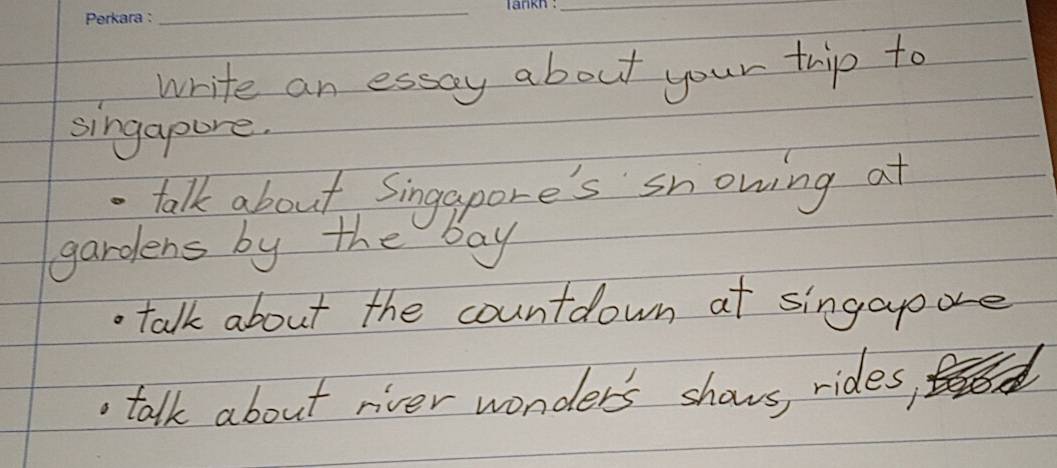 Perkara :
Tarikh :
Write an essay about your trip to
singapore.
• talk about Singapore's snowing at
gardens by the bay
• talk about the countdown at singapore
• talk about river wonder's shows, rides,